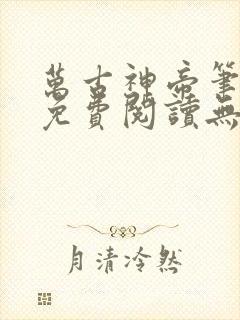 萬古神帝筆
免費閱讀無
月清冷然